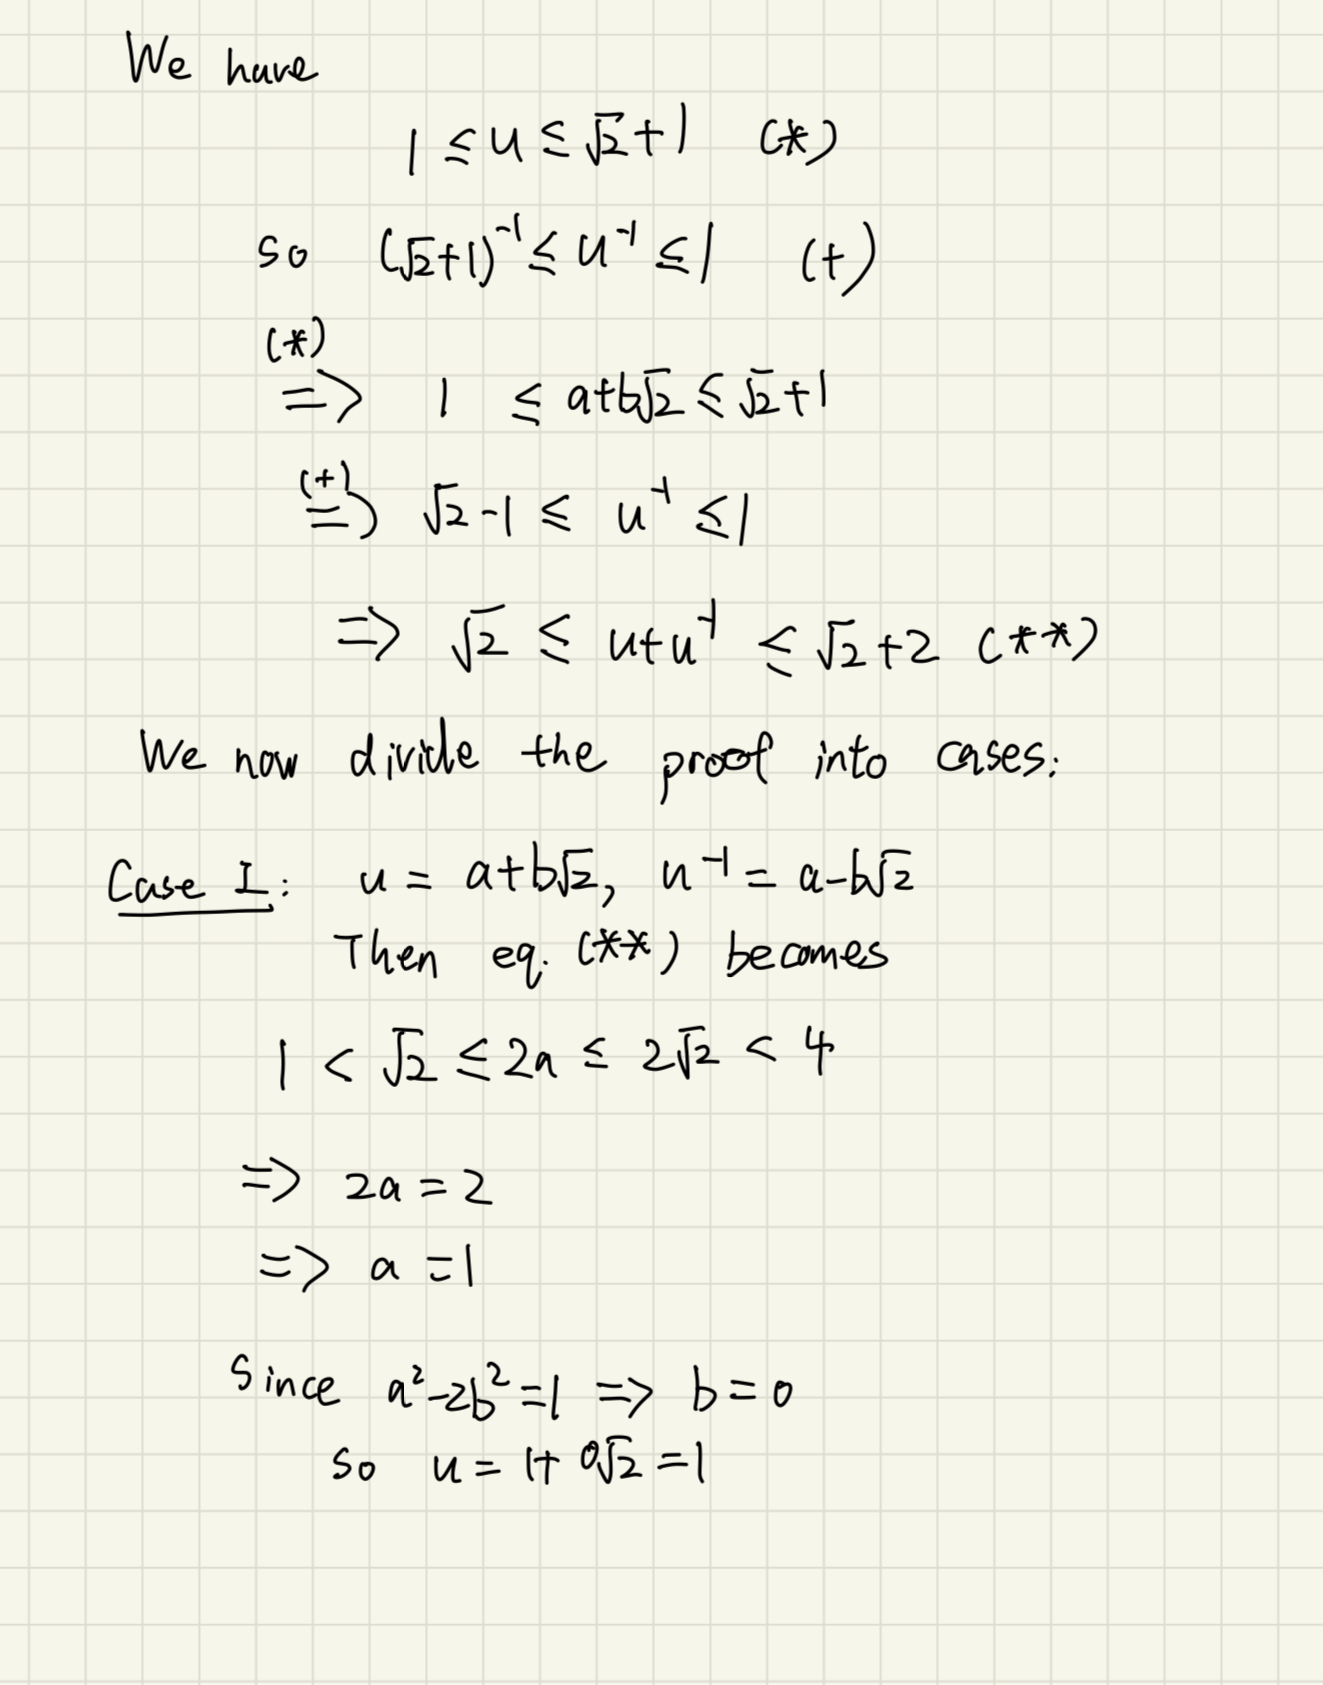 We have
1 ≤ u ≤ √2+1 (*)
so (√2+1)⁻¹ ≤ u⁻¹ ≤ 1 (+)
(*)
=> 1 ≤ a+b√2 ≤ √2+1
(+)
=> √2-1 ≤ u⁻¹ ≤ 1
=> √2 ≤ u+u⁻¹ ≤ √2+2 (**)
We now divide the proof into cases:
Case I: u = a+b√2, u⁻¹ = a-b√2
Then eq. (**) becomes
1 < √2 ≤ 2a ≤ 2√2 < 4
=> 2a = 2
=> a = 1
Since a²-2b²=1 => b=0
so u = 1+0√2 = 1